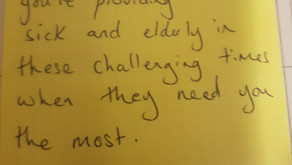 you're providing
sick and elduly in
these challenging times
when they need you
the most.